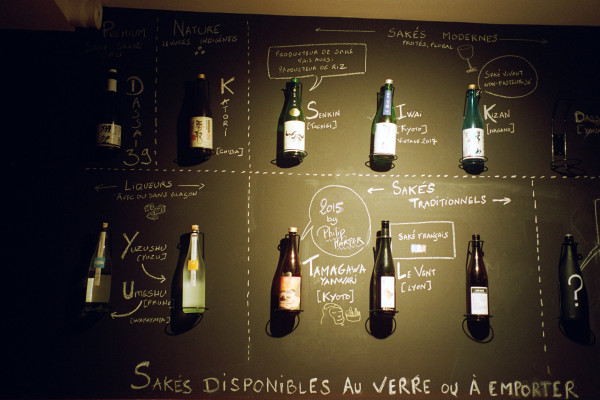 PREMIUM
DASSAI
39
NATURE
LEVURES INDIGÈNES
KATORI
[CHIBA]
SAKÉS MODERNES
FRUITÉS, FLORAL
PRODUCTEUR DE SAKÉ
MAIS AUSSI
PRODUCTEUR DE RIZ
SENKIN
[TOCHIGI]
IWAI
[KYOTO]
VINTAGE 2017
SAKÉ VIVANT
NON-PASTEURISÉ
KIZAN
[NAGANO]
LIQUEURS
AVEC OU SANS GLAÇON
YUZUSHU
[YUZU]
UMESHU
[PRUNE]
[WAKAYAMA]
SAKÉS
TRADITIONNELS
2015
by
Philip
HARPER
TAMAGAWA
[KYOTO]
SAKÉ FRANÇAIS
LE VENT
[LYON]
?
SAKÉS DISPONIBLES AU VERRE OU À EMPORTER